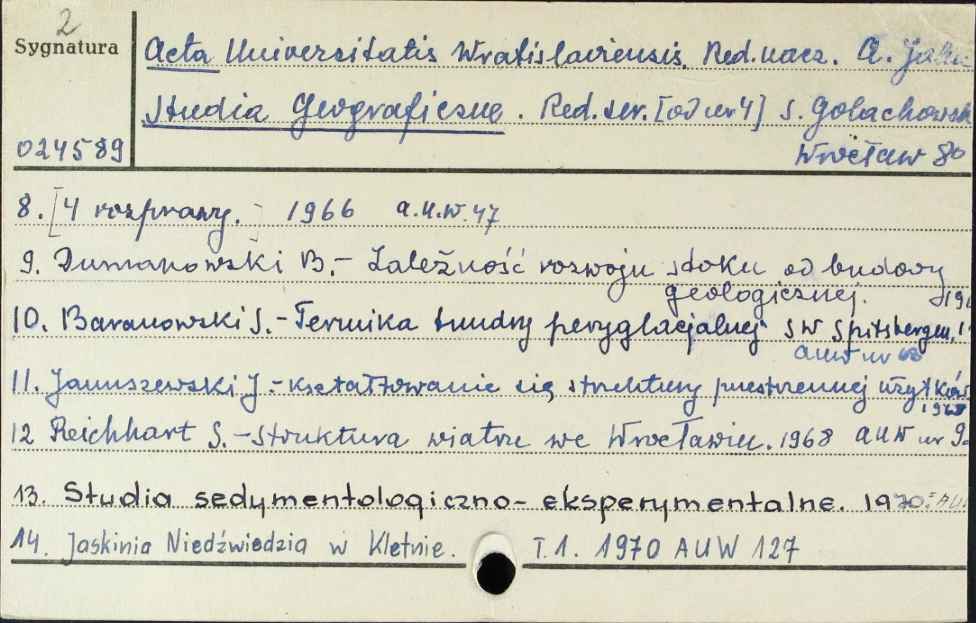 2
Sygnatura
Acta Universitatis Wratislaviensis. Red. nacz. A.
Studia Geograficzne. Red. ser. [od nr 4] S. Golachowsk
024589
Wrocław
8. [4 rozprawy.] 1966 A.U.W. 47
9. Dumanowski B. – Zależność rozwoju stoku od budowy
geologicznej. 19
10. Baranowski S. – Termika tundry peryglacjalnej SW Spitsbergen,
AUW nr 68
11. Januszewski J. – kształtowanie się struktury przestrzennej użytków
1968
12 Reichhart S. – Struktura wiatru we Wrocławiu. 1968 AUW nr
13. Studia sedymentologiczno-eksperymentalne. 1970
14. Jaskinia Niedźwiedzia w Kletnie. T.1. 1970 AUW 127